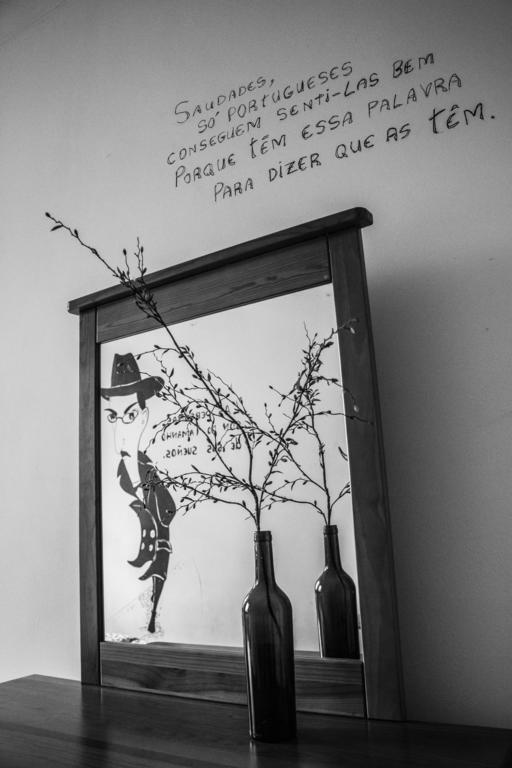 SAUDADES,
SÓ PORTUGUESES
CONSEGUEM SENTI-LAS BEM
PORQUE TÊM ESSA PALAVRA
PARA DIZER QUE AS TÊM.
TAMANHO
DE SUS SUEÑOS.